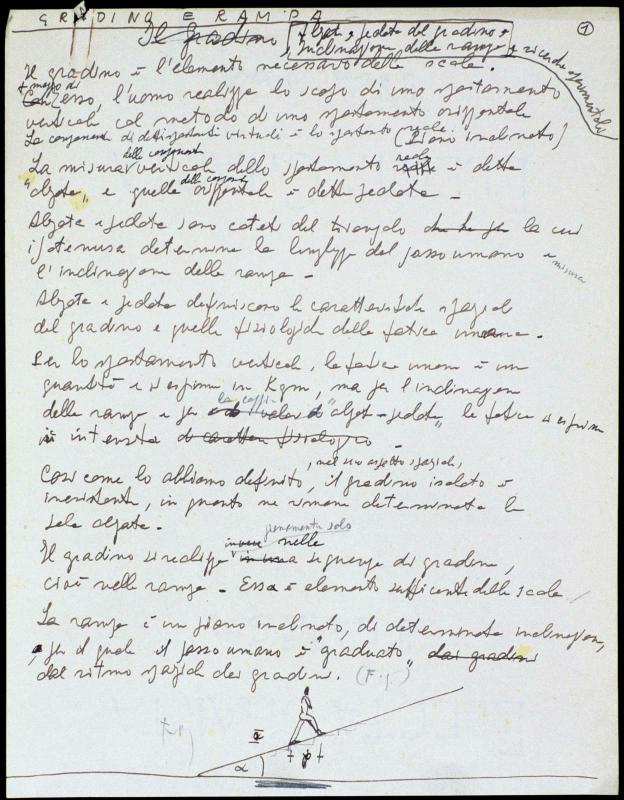 GRADINO E RAMPA
①
Il Gradino
alzata e pedata del gradino e
e inclinazione della rampa e ricerche sperimentali
Il gradino è l'elemento necessario della scala.
A mezzo di
Con esso, l'uomo realizza lo scopo di uno spostamento
verticale col metodo di uno spostamento orizzontale
La componente di detti spostamenti virtuali è lo spostamento reale (piano inclinato)
della componente
La misura verticale dello spostamento reale è detta
"alzata", e quella della componente orizzontale è detta pedata -
Alzata e pedata sono cateti del triangolo che ha per la cui
ipotenusa determina la lunghezza del passo umano e
misura
l'inclinazione della rampa -
Alzata e pedata definiscono le caratteristiche spaziali
del gradino e quelle fisiologiche della fatica umana.
Per lo spostamento verticale, la fatica umana è un
quantità e si esprime in Kgm, ma per l'inclinazione
della rampa e per la coppia valori "alzata-pedata", la fatica si esprime
in intensità di carattere fisiologico -
, nel suo aspetto spaziale,
Così come lo abbiamo definito, il gradino isolato è
inesistente, in quanto ne rimane determinata la
sola alzata -
pienamente solo
Il gradino si realizza invece in una nelle sequenze di gradini,
cioè nella rampa - Essa è elemento sufficente della scala
La rampa è un piano inclinato, di determinata inclinazione,
per il quale il passo umano è "graduato" dai gradini
dal ritmo spaziale dei gradini. (Fig)
a
p
α